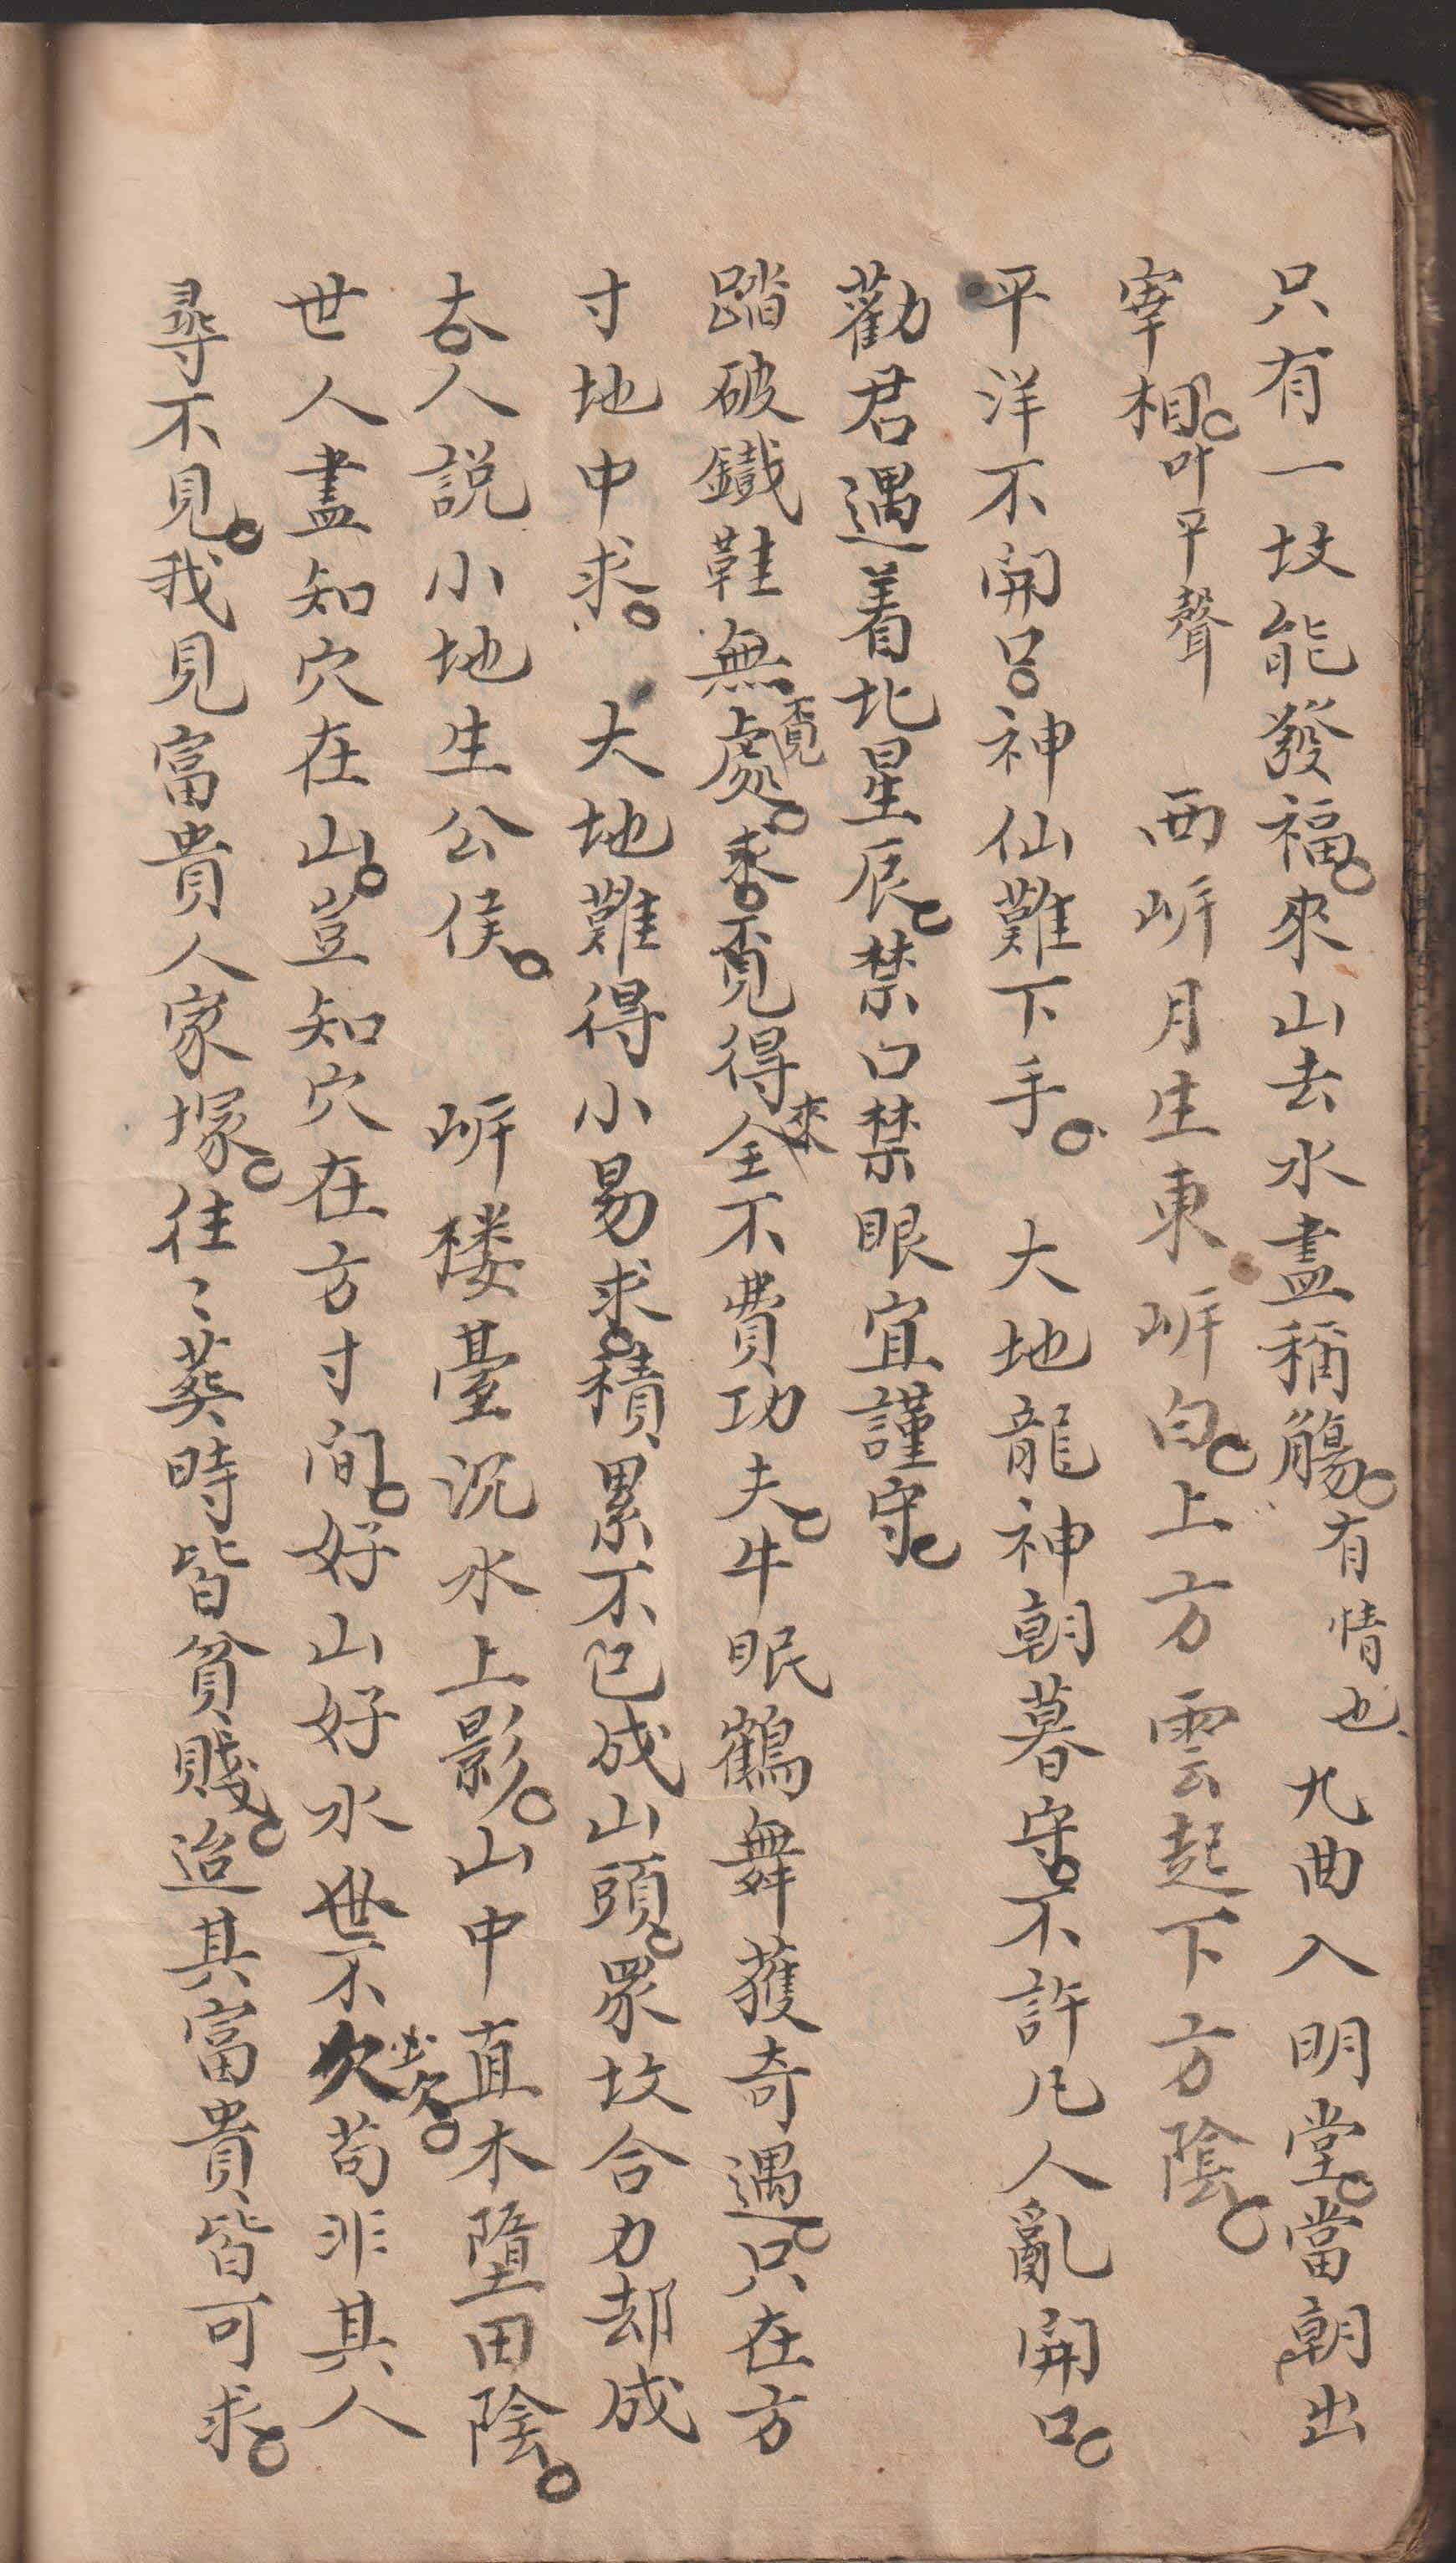 只有一坟能發福。來山去水盡稱觴。有情也、九曲入明堂。當朝出
宰相。叶平聲　西𡵆月生東𡵆白。上方雲起下方陰。
平洋不開口。神仙難下手。　大地龍神朝暮守。不許凡人亂開口。
勸君遇着北星辰。禁口禁眼宜謹守。
踏破鐵鞋無覓處。來。覓得來全不費功夫。牛眠鶴舞獲奇遇。只在方
寸地中求。　大地難得小易求。積累不已成山頭。眾坟合力却成
大。人説小地生公侯。　𡵆楼臺沉水上影。山中直木墮田陰。
世人盡知穴在山。豈知穴在方寸間。好山好水世不欠。苟非其人
尋不見。我見富貴人家塚。往〻葬時皆貧賤。迨其富貴皆可求。